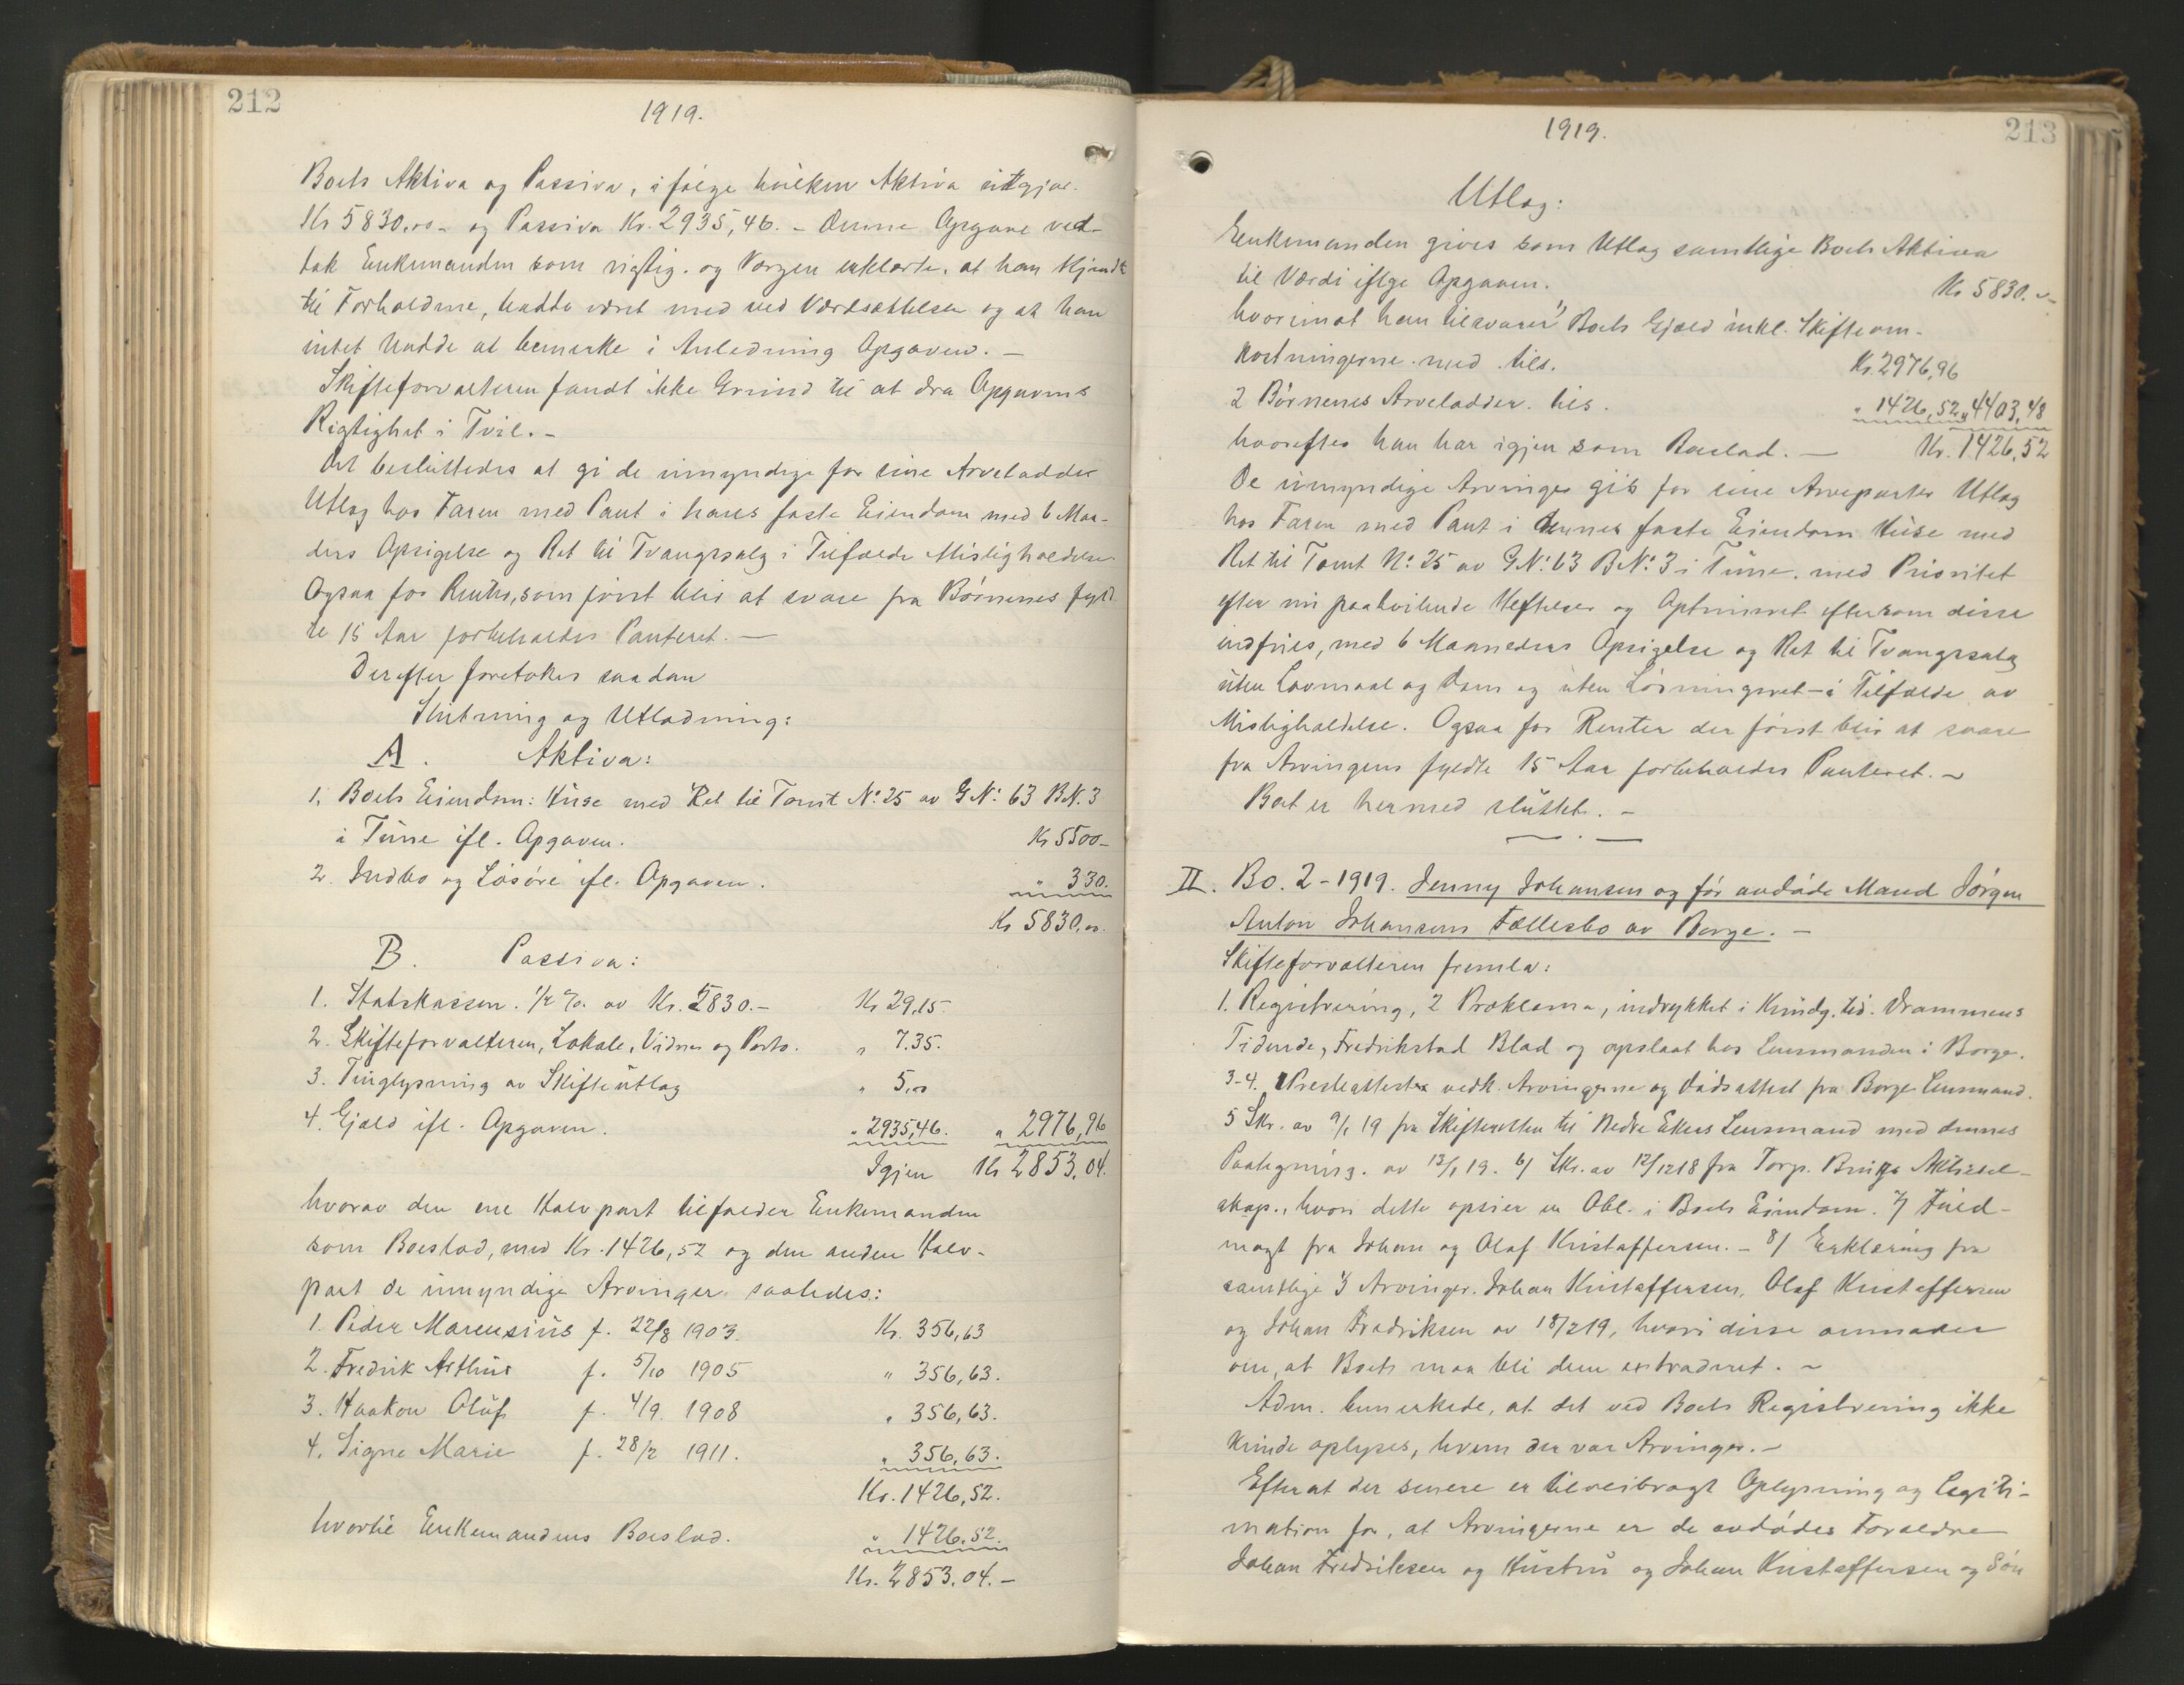 212
1919.
Boets Aktiva og Passiva, i følge hvilken Aktiva utgjør
Kr 5830,00 og Passiva Kr. 2935,46. – Denne Opgave ved-
tok Enkemanden som rigtig. og Vergen erklærte, at han kjendte
til Forholdene, hadde været med ved Værdsættelsen og at han
intet hadde at bemerke i Anledning Opgaven. –
Skifteforvalteren fandt ikke Grund til at dra Opgavens
Rigtighet i Tvil. –
Det besluttedes at gi de umyndige for sine Arvelodder
Utlæg hos Faren med Pant i hans faste Eiendom med 6 Maa-
ders Opsigelse og Ret til Tvangssalg i Tilfælde Misligholdelse
Ogsaa for Renter, som først blir at svare fra Børnenes fyld-
te 15 Aar forbeholdes Panteret. —
Derefter foretokes saadan
Slutning og Utlodning:
A. Aktiva:
1. Boets Eiendom: Huse med Ret til Tomt No: 25 av GNo: 63 BN. 3
i Tune ifl. Opgaven. Kr 5500–
2. Indbo og Løsøre ifl. Opgaven. " 330.
Kr 5830,00.
B. Passiva:
1. Statskassen. 1/2 % av Kr. 5830.– Kr 29,15.
2. Skifteforvalteren, Lokale, Vidner og Porto. " 7.35.
3. Tinglysning av Skifteutlæg " 5,00
4. Gjæld ifl. Opgaven. " 2935,46. " 2976,96
Igjen Kr 2853,04.
hvorav den ene Halvpart tilfalder Enkemanden
som Boeslod, med Kr. 1426,52 og den anden Halv-
part de umyndige Arvinger saaledes:
1. Peder Marensius f. 22/8 1903. Kr. 356,63
2. Fredrik Arthur f. 5/10 1905 " 356,63.
3. Haakon Oluf f. 4/9. 1908 " 356,63.
4. Signe Marie f. 28/2 1911. " 356,63.
Kr. 1426,52.
hvortil Enkemandens Boeslod. " 1426,52.
Kr. 2853.04.–
213
1919.
Utlæg:
Enkemanden gives som Utlæg samtlige Boets Aktiva
til Værdi iflge Opgaven. Kr 5830.–
hvorimot han tilsvarer Boets Gjæld inkl. Skifteom-
kostningerne med tils. Kr. 2976,96
2 Børnenes Arvelodder tils. " 1426,52 " 4403,48
hvorefter han har igjen som Boeslod. — Kr. 1426,52
De umyndige Arvinger gis for sine Arveparter Utlæg
hos Faren med Pant i dennes faste Eiendom Huse med
Ret til Tomt No: 25 av GNo: 63 BNo: 3 i Tune. med Prioritet
efter nu paahvilende Heftelser og Optrinsret eftersom disse
indfries, med 6 Maaneders Opsigelse og Ret til Tvangssalg
uten Lovmaal og Dom og uten Løsningsret – i Tilfælde av
Misligholdelse. Ogsaa for Renter der først blir at svare
fra Arvingens fyldte 15 Aar forbeholdes Panteret. –
Boet er hermed sluttet. –
II. Bo. 2 – 1919. Jenny Johansen og før avdøde Mand Jørgen
Anton Johansens Fællesbo av Borge. –
Skifteforvalteren fremla:
1. Registrering, 2 Proklama, indrykket i Kundg. tid. Drammens
Tidende, Fredrikstad Blad og opslaat hos Lensmanden i Borge.
3–4. Presteattester vedk. Arvingerne og Dødsattest fra Borge Lensmand.
5 Skr. av 9/1 19 fra Skifteretten til Nedre Ekers Lensmand med dennes
Paategning. av 13/1 19. 6/ Skr. av 12/12 18 fra Torp. Bruks Aktiesel-
skap., hvori dette opsier en Obl. i Boets Eiendom. 7/ Fuld-
magt fra Johan og Olaf Kristoffersen. – 8/ Erklæring fra
samtlige 3 Arvinger. Johan Kristoffersen, Olaf Kristoffersen
og Johan Fredriksen av 18/2 19, hvori disse anmoder
om, at Boets maa bli dem extraderet. –
Adm. bemerkede, at det ved Boets Registrering ikke
kunde oplyses, hvem der var Arvinger. –
Efterat der senere er tilveibragt Oplysning og Legiti-
mation for, at Arvingerne er de avdødes Forældre
Johan Fredriksen og Hustru og Johan Kristoffersen og Søn